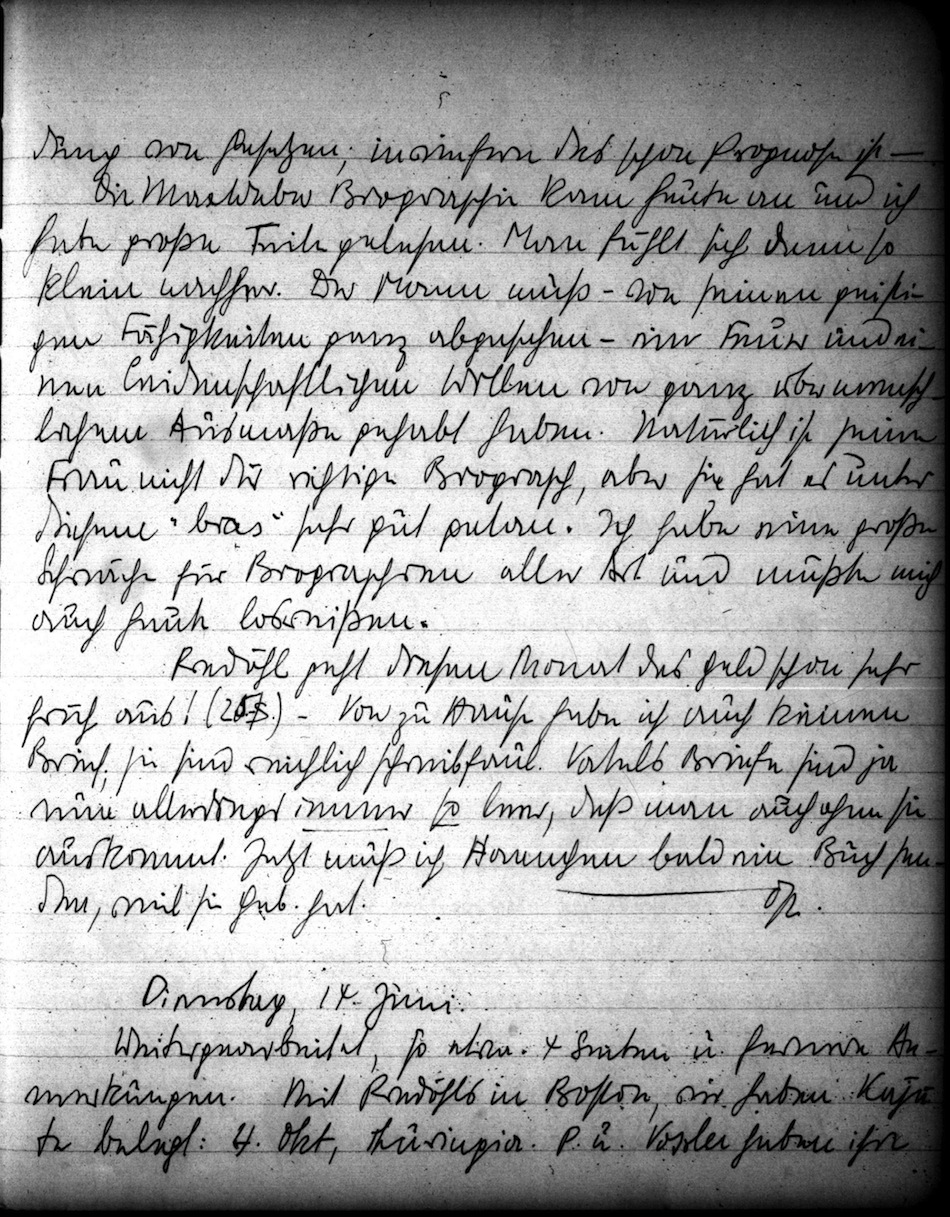 dung von Gesetzen, inwiefern das schon Prognose ist —
Die Max Weber Biographie kam heute an und ich
habe große Teile gelesen. Man fühlt sich dann so
klein nachher. Der Mann muß - von seinen geisti-
gen Fähigkeiten ganz abgesehen - ein Feuer und ei-
nen leidenschaftlichen Willen von ganz übermensch-
lichem Ausmaße gehabt haben. Natürlich ist seine
Frau nicht der richtige Biograph, aber sie hat es unter
diesem "bias" sehr gut getan. Ich habe eine große
Schwäche für Biographien aller Art und mußte mich
auch heute losreißen.
Predöhl geht diesen Monat das Geld schon sehr
früh aus! (25$.) - Von zu Hause habe ich auch keinen
Brief, sie sind reichlich schreibfaul. Vatels Briefe sind ja
nun allerdings immer so leer, daß man auch ohne sie
auskommt. Jetzt muß ich Hannchen bald ein Buch sen-
den, weil sie Geb. hat.
Dienstag, 14. Juni.
Weitergearbeitet, so etwa 4 Seiten u. fernere An-
merkungen. Mit Predöhls in Boston, wir haben Kajü-
te belegt: 4. Okt, Thuringia. P. u. Vossler haben ihre